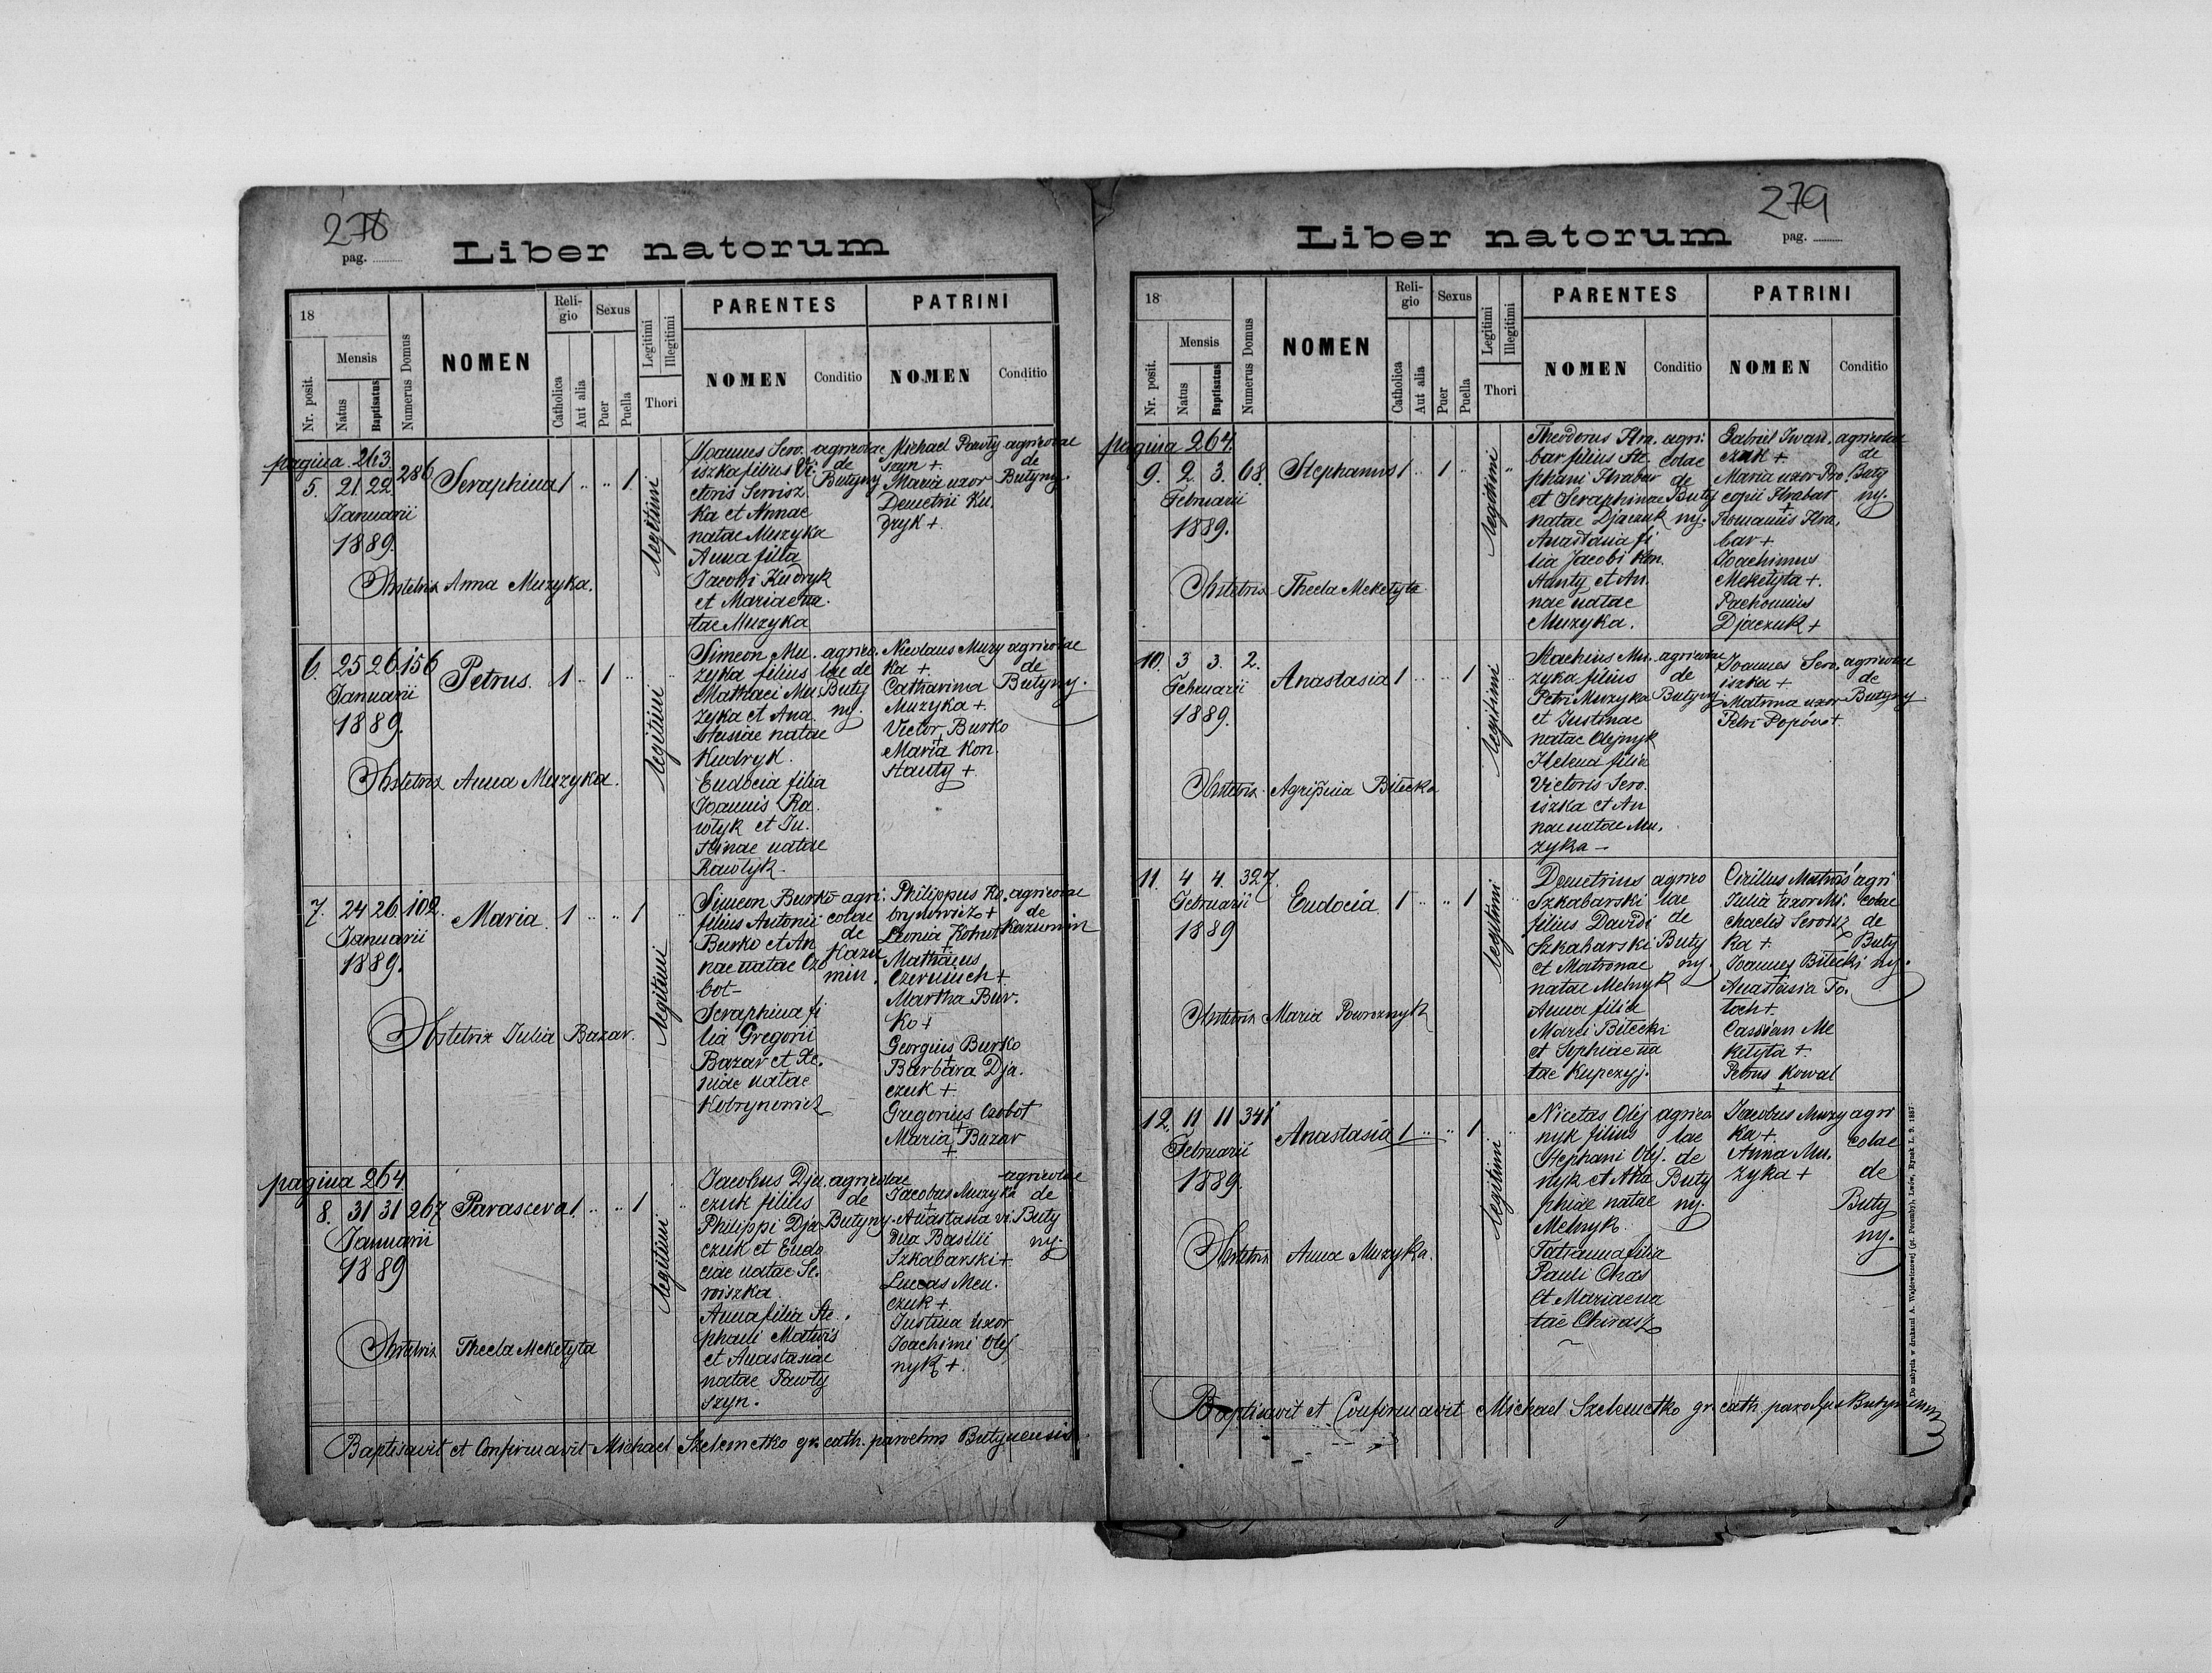 278
pag.
Liber natorum
18
Nr. posit.
Mensis
Natus
Baptisatus
Numerus Domus
NOMEN
Reli-
gio
Catholica
Aut alia
Sexus
Puer
Puella
Legitimi
Illegitimi
Thori
PARENTES
NOMEN
Conditio
PATRINI
NOMEN
Conditio
pagina 263.
5. 21. 22 286 Seraphina 1 .. .. 1.
Januarii
1889.
legitimi
Obstetrix Anna Muzyka.
Joannes Sero.
iszka filius Vi.
ctoris Seroisz
ka et Annae
natae Muzyka
Anna filia
Jacobi Kudryk
et Mariae na.
tae Muzyka
agricolae
de
Butyny
Michael Pawły
szyn +.
Maria uxor
Demetrii Ku.
dryk +.
agricolae
de
Butyny.
6. 25 26 156 Petrus. 1 .. 1 ..
Januarii
1889.
legitimi
Obstetrix Anna Muzyka.
Simeon Mu.
zyka filius
Matthaei Mu
zyka et Ana.
stasiae natae
Kudryk.
Eudocia filia
Joannis Ra.
włyk et Ju.
stinae natae
Rawłyk.
agrico.
lae de
Buty
ny.
Nicolaus Muzy
ka +
Catharina
Muzyka +.
Victor Burko
+
Maria Kon.
stanty +.
agricolae
de
Butyny.
7. 24 26 102. Maria. 1 .. .. 1
Januarii
1889.
legitimi
Obstetrix Julia Bazar.
Simeon Burko
filius Antonii
Burko et An
nae natae Czo
bot
Seraphina fi
lia Gregorii
Bazar et Xe.
niae natae
Kobrynowicz
agri.
colae
de
Kazu
min.
Philippus Ko.
brynowicz +
Leonia Kohut
+
Mathaeus
Czerniuch +
Martha Bur.
ko +
Georgius Burko
+
Barbara Dja.
czuk +
Gregorius Czobot
+
Maria Bazar
+
agricolae
de
Kazumin
pagina 264
8. 31 31 267 Parasceva 1. .. .. 1
Januarii
1889
legitimi
Obstetrix Thecla Meketyta
Jacobus Dja
czuk filius
Philippi Dja
czuk et Eudo
ciae natae Se.
roiszka
Anna filia Ste.
phani Matwis
et Anastasiae
natae Pawły
szyn.
agricolae
de
Butyny.
Jacobus Muzyka
+
Anastasia vi
dua Basilii
Szkabarski +
Lucas Men.
czuk +
Justina uxor
Joachimi Olej
nyk +.
agricolae
de
Buty
ny.
Baptisavit et Confirmavit Michael Szelemetko gr. cath. parochus Butynensis
279
pag.
Liber natorum
18
Nr. posit.
Mensis
Natus
Baptisatus
Numerus Domus
NOMEN
Reli-
gio
Catholica
Aut alia
Sexus
Puer
Puella
Legitimi
Illegitimi
Thori
PARENTES
NOMEN
Conditio
PATRINI
NOMEN
Conditio
pagina 264.
9. 2. 3. 68. Stephanus 1 .. 1 ..
Februarii
1889.
legitimi
Obstetrix Thecla Meketyta
Theodorus Hra.
bar filius Ste.
phani Hrabar
et Seraphinae
natae Djaczuk
Anastasia fi
lia Jacobi Kon.
stanty et An.
nae natae
Muzyka.
agri.
colae
de
Buty
ny.
Gabriel Iwan.
czuk +
Maria uxor Pro.
copii Hrabar
+
Romanus Hra.
bar +
Joachimus
Meketyta +.
Pachomius
Djaczuk +
agricolae
de
Buty
ny.
10. 3 3. 2. Anastasia 1 .. .. 1
Februarii
1889.
legitimi
Obstetrix Agripina Bitecka
Stachius Mu.
zyka filius
Petri Muzyka
et Justinae
natae Olejnyk
Helena filia
Victoris Sero.
iszka et An
nae natae Mu.
zyka
agricolae
de
Butyny
Joannes Sero.
iszka +
Matrona uxor
Petri Popów +.
agricolae
de
Butyny
11. 4 4. 327. Eudocia 1 .. .. 1
Februarii
1889
legitimi
Obstetrix Maria Powroznyk
Demetrius
Szkabarski
filius Davidi
Szkabarski
et Matronae
natae Melnyk
Anna filia
Marci Bitecki
et Sophiae na
tae Kupczyj.
agrico
lae
de
Buty
ny.
Cirillus Matwis
+
Julia uxor Mi.
chaelis Seroisz
ka +
Joannes Bitecki
+
Anastasia To.
toch +
Cassian Me
ketyta +.
Petrus Kowal
+
agri
colae
de
Buty
ny.
12. 11 11 341 Anastasia 1 .. .. 1
Februarii
1889.
legitimi
Obstetrix Anna Muzyka.
Nicetas Olej
nyk filius
Stephani Olej.
nyk et Aka
phiae natae
Melnyk.
Tatianna filia
Pauli Chas
et Mariae na
tae Chirasz
agrico
lae
de
Buty
ny.
Jacobus Muzy
ka +.
Anna Mu.
zyka +
agri
colae
de
Buty
ny.
Baptisavit et Confirmavit Michael Szelemetko gr. cath. parochus Butynensis
Do nabycia w drukarni A. Wajdowiczowej (pt. Poremby), Lwów, Rynek L. 9. 1887.